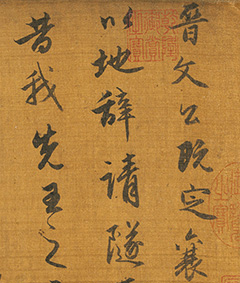 晋文公既定襄
以地辞請隧
昔我先王之